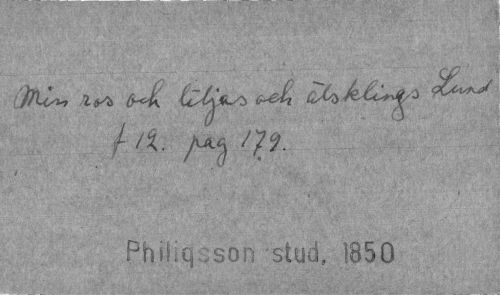 Min ros och liljas och älsklings Lund
f 12. pag 179.
Philiqsson stud, 1850